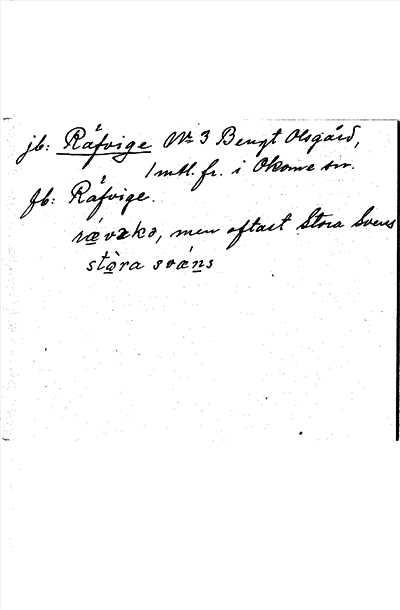 jb: Räfvige Nr 3 Bengt Olsgård,
1 mtl. fr. i Okome sn.
Jb: Räfvige.
rævækə, men oftast Stora Svens
stòra svæns